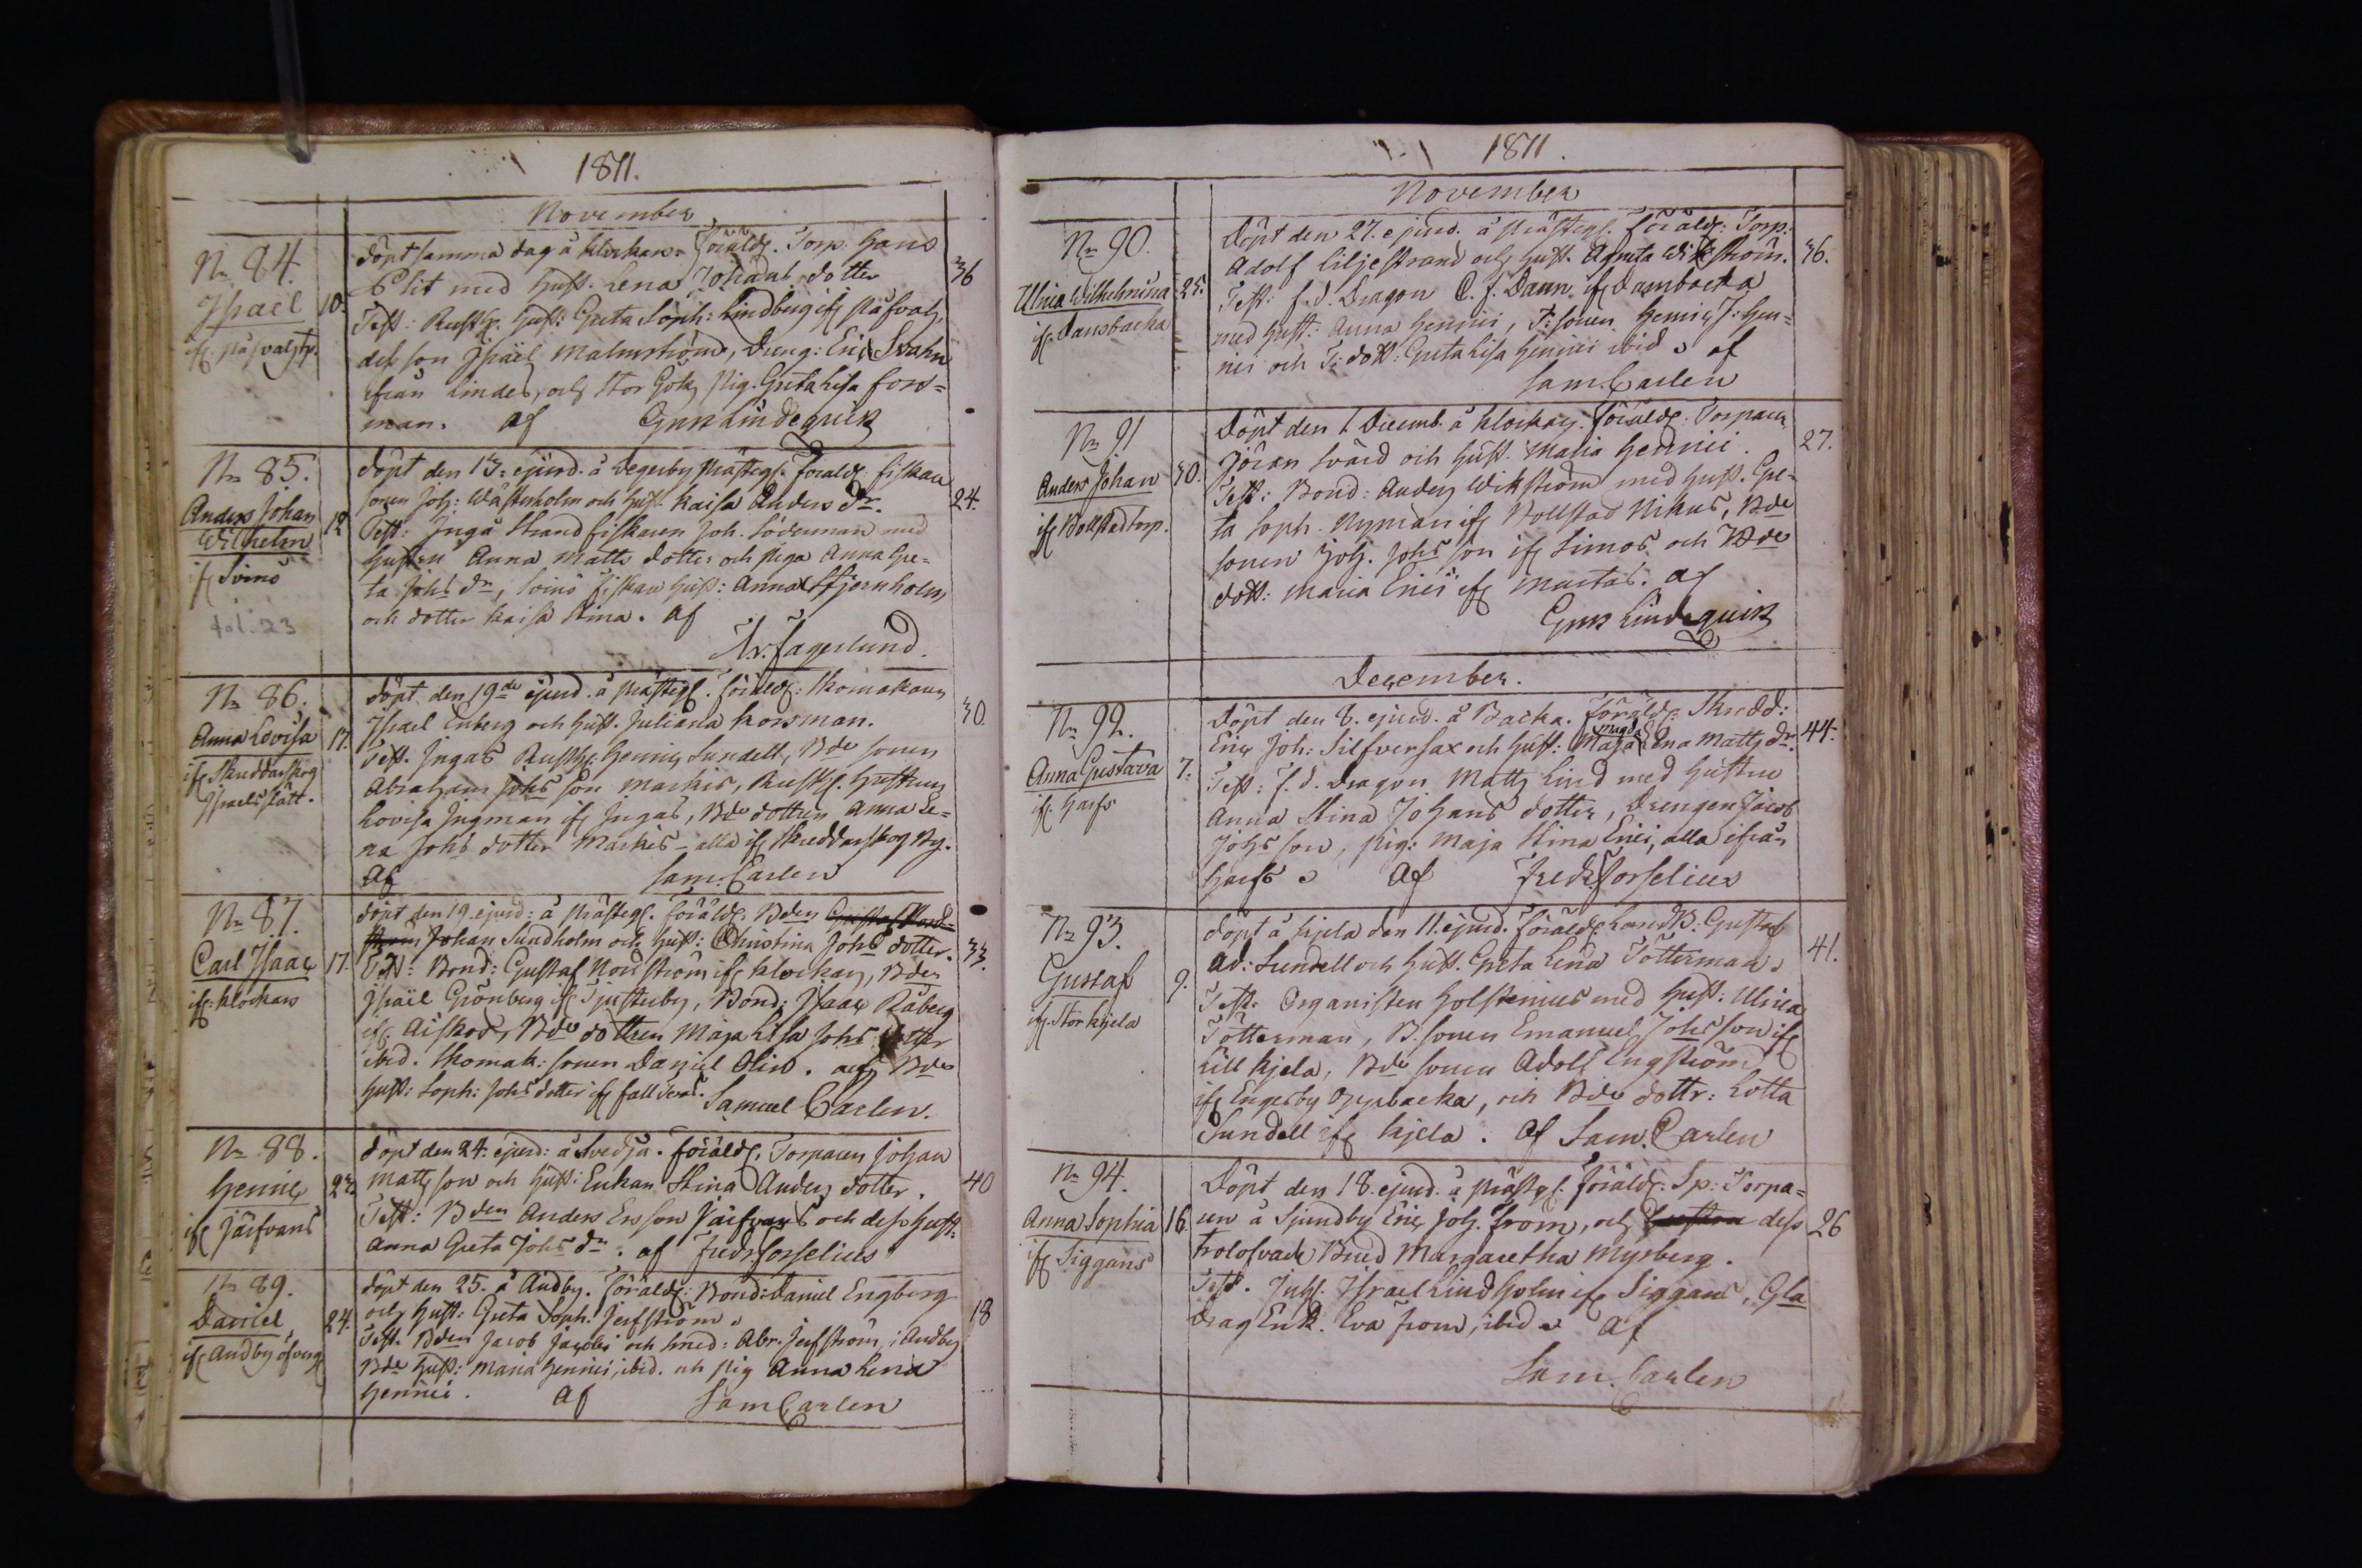 1811.
November
No 84.
Israel
10.
Döpt samma dag å Klockars. Föräldr. Torp. Hans
Blit med Hust. Lena Johans dotter
36
Test: Rusth. Hust: Greta Soph: Lindberg
dess son Israël Malmström, Dreng: Eric Svahn
ifrån Lindes, och Stor Göks Pig. Greta Lisa Fors=
man. af Gust Lindequist
No 85.
Anders Johan
Wilhelm
if Svinö
fol. 23
12
Döpt den 13: ejusd. å Degerby Prästeg. Föräldr. Fiskare
sonen Joh: Wästerholm och Hust. Kaisa Anders dr.
24.
Test: Ingå Strand fiskaren Joh. Söderman med
Hustru Anna Matts dotter och Piga Anna Gre=
ta Johs dr, Svinö fiskare Hust: Anna Stjernholm
och dotter Kaisa Stina. af
Ar. Fagerlund.
No 86.
Anna Lovisa
17.
if Skreddarskog
Israels
Döpt den 19de ejusd. å Prästeg. Föräldr: Skomakaren
Israel Enberg och Hust. Juliana Korsman.
30
Test. Ingas Rusth: Henric Sundell, Bde sonen
Abraham Johs son Markis, Rusth. Hustrun
Lovisa Ingman if Ingas, Bde dottren Anna Le=
na Johs dotter Markis - alla if Skreddarskog By.
af Sam. Carlen
No 87.
Carl Isaac
17.
if: Klockars
Döpt den 19. ejusd: å Prästeg. Föräldr. Bden Gustaf Nord=
ström Johan Sundholm och Hust: Christina Johs dotter.
33.
Test: Bond: Gustaf Nordström if Klockars, Bden
Israël Grönberg if Tjusterby, Bond: Isaac Råberg
if Aiskos, Bde dottren Maja Lisa Johs dotter
ibid. Skomak: sonen Daniel Olin. och Bde
Hust: Soph: Johs dotter if Fall
Samuel Carlen.
No 88.
Henric
23.
if Järfvans
Döpt den 24. ejusd: å Svedja. Föräldr. Torparen Johan
Matts son och Hust: Enkan Stina Anders dotter.
40
Test: Bden Anders Ers son Järfvans och dess Hust:
Anna Greta Johs dr. af Fredr. Forselius
No 89.
Daniel
24.
if Andby öfverg
Döpt den 25. å Andby. Föräldr: Bond: Daniel Engberg
och Hust: Greta Soph. Jerfström.
18
Test. Bden Jacob Jacobs och Smed: Abr. Jerfström, i Andby
Bde Hust: Maria Henrici, ibid. och Pig Anna Lena
Henrici. af Sam Carlen
1811.
November
No 90.
Ulrica Wilhelmina
25.
if. Dansbacka
Döpt den 27. ejusd. å Prästeg. Föräldr: Torp.
Adolf Liljestrand och Hust. Agneta Wikström.
36.
Test: f. d. Dragon C. J. Daun if Dansbacka
med Hust: Anna Henrici, T: sonen Henric J: Hen=
rici och T: dott: Greta Lisa Henrici ibid. af
Sam. Carlen
No 91
Anders Johan
30.
if Bollstad torp.
Döpt den 1 Decemb. å Klockars. Föräldr: Torparen
Jöran Svärd och Hust. Maria Henrici.
27.
Test: Bond: Anders Wikström med Hust. Gre=
ta Soph. Nyman if Bollstad Nikus, Bde
sonen Joh. Johs son if Simos och Bde
dott: Maria Erici if Martas. af
Gust Lindequist
December.
No 92.
Anna Gustava
7.
if. Harfs
Döpt den 8. ejusd. å Backa. Föräldr: Skredd:
Magd
Eric Joh: Silfversax och Hust: Maja Lena Matts dr.
44.
Test: f. d. Dragon Matts Lind med Hustru
Anna Stina Johans dotter, Drengen Jacob
Johs son, Pig: Maja Stina Erici, alla ifrån
Harfs. af Fredr. Forselius
No 93.
Gustaf
9.
if. Stor Kjela
Döpt å Kjela den 11. ejusd. Föräldr: LandB: Gustaf
Ad: Sundell och Hust. Greta Lena Tötterman.
41.
Test: Organisten Holstenius med Hust: Ulrica
Tötterman, B. sonen Emanuel Johs son if
Lill Kjela, Bde sonen Adolf Engström
if Engesby, och Bde dottr: Lotta
Sundell if Kjela. af Sam. Carlen
No 94.
Anna Sophia
16.
if Siggans
Döpt den 18. ejusd. å Prästg. Föräldr: Sp: Torpa=
ren å Sjundby Eric Joh. From, och Hustru dess
26
trolofvade Brud Margaretha Myrberg.
Test. Inh. Israel Lindholm if Siggans, Gla
Drag Enk. Eva From, ibid. af
Sam. Carlen